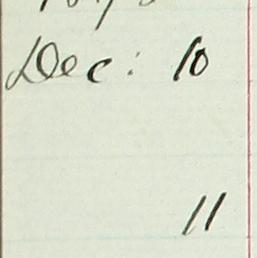 Dec: 10
11